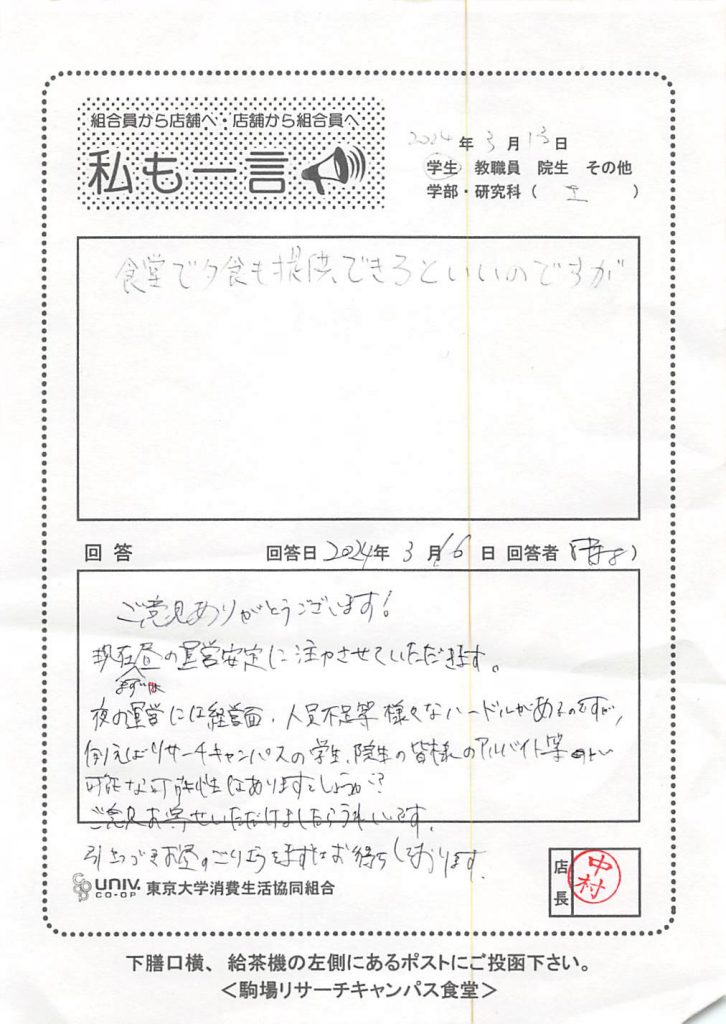 組合員から店舗へ・店舗から組合員へ
私も一言
2024年3月13日
学生 教職員 院生 その他
学部・研究科（ 工 ）
食堂で夕食も提供できるといいのですが
回答 回答日 2024年 3月16日 回答者（ ）
ご意見ありがとうございます！
現在昼の運営安定に注力させていただきます。
まずは
夜の運営には経営面、人員不足等様々なハードルがあるのですが、
例えばリサーチキャンパスの学生、院生の皆様のアルバイト等
可能性はありますでしょうか？
ご意見お寄せいただけましたらうれしいです。
引きつづきお昼のご利用をまずはお待ちしております。
UNIV. CO-OP 東京大学消費生活協同組合
店長 中村
下膳口横、給茶機の左側にあるポストにご投函下さい。
＜駒場リサーチキャンパス食堂＞